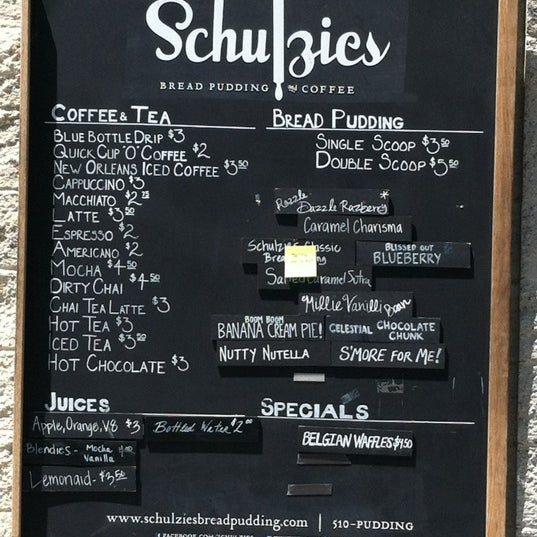 Schulzies
BREAD PUDDING and COFFEE
COFFEE & TEA
BLUE BOTTLE DRIP $3
QUICK CUP 'O' COFFEE $2
NEW ORLEANS ICED COFFEE $3.50
CAPPUCCINO $3
MACCHIATO $2.75
LATTE $3.50
ESPRESSO $2
AMERICANO $2
MOCHA $4.50
DIRTY CHAI $4.50
CHAI TEA LATTE $3
HOT TEA $3
ICED TEA $3.50
HOT CHOCOLATE $3
BREAD PUDDING
SINGLE SCOOP $3.50
DOUBLE SCOOP $5.50
Razzle
Dazzle Razberry
CARAMEL CHARISMA
Schulzie's Classic
Bread Pudding
BLISSED OUT
BLUEBERRY
Salted Caramel Sutra
Millie Vanilli Bean
BOOM BOOM
BANANA CREAM PIE!
CELESTIAL CHOCOLATE
CHUNK
NUTTY NUTELLA
S'MORE FOR ME!
JUICES
Apple, Orange, V8 $3
Bottled Water $2.00
Blendies - Mocha
Vanilla
Lemonaid - $3.50
SPECIALS
BELGIAN WAFFLES $4.50
www.schulziesbreadpudding.com | 510-PUDDING
FACEBOOK.COM/SCHULZIES